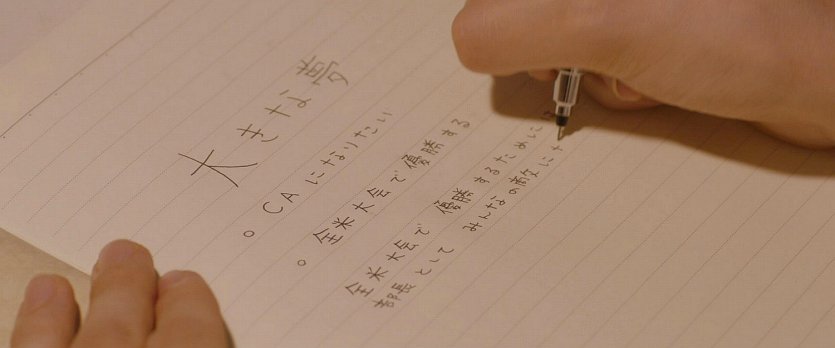 大きな夢
○ CAになりたい
○ 全米大会で優勝する
全米大会で 優勝するために
部長として みんなの敵に